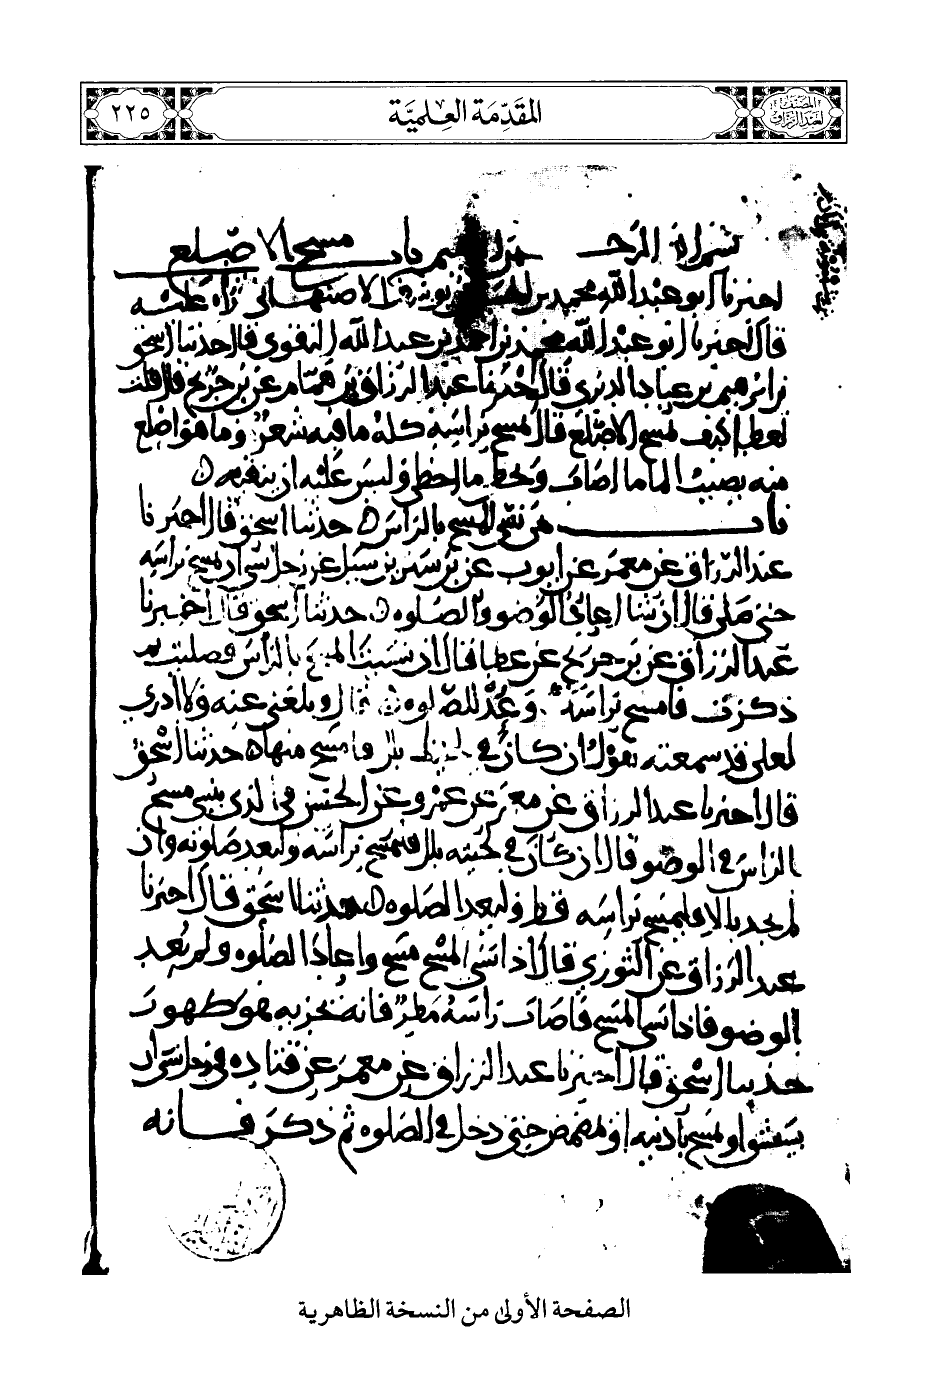 المصنف لعبد الرزاق
المقدمة العلمية
٢٢٥
بسم الله الرحمن الرحيم باب مسح الاصلع
اخبرنا ابو عبد الله محمد بن الاصبهاني قراه عليه
قال اخبرنا ابو عبد الله محمد بن احمد بن عبد الله النقوي قال حدثنا اسحق
بن ابرهيم بن عباد الدبري قال اخبرنا عبد الرزاق بن همام عن بن جريج قال قلت
لعطا كيف يمسح الاصلع قال يمسح براسه كله ما فيه شعر وما هو اصلع
منه يصيب الما ما اصاب ويخطي ما اخطى وليس عليه ان
باب من نسي المسح بالراس حدثنا اسحق قال اخبرنا
عبد الرزاق عن معمر عن ايوب عن بن سيرين سيل عن رجل نسي ان يمسح براسه
حتى صلى قال ان شا اعاد الوضو والصلوه حدثنا اسحق قال اخبرنا
عبد الرزاق عن بن جريج عن عطا قال ان نسيت المسح بالراس فصليت ثم
ذكرت فامسح براسك وعد للصلوه قال وبلغني عنه ولا ادري
لعلي قد سمعته يقول ان كان في بلل فامسح منها حدثنا اسحق
قال اخبرنا عبد الرزاق عن معمر عن عمرو عن الحسن في الذي ينسى مسح
الراس في الوضو قال ان كان في لحيته بلل فليمسح براسه وليعد صلوته وان
لم يجد بللا فليمسح براسه قط وليعد الصلوه حدثنا اسحق قال اخبرنا
عبد الرزاق عن الثوري قال اذا نسي المسح مسح واعاد الصلوه ولم يعد
الوضو فاذا نسي المسح فاصاب راسه مطر فانه يجزيه هو طهور
حدثنا اسحق قال اخبرنا عبد الرزاق عن معمر عن قتاده في رجل نسي ان
يستنثر او يمسح باذنيه او يمضمض حتى دخل في الصلوه ثم ذكر فانه
الصفحة الأولى من النسخة الظاهرية